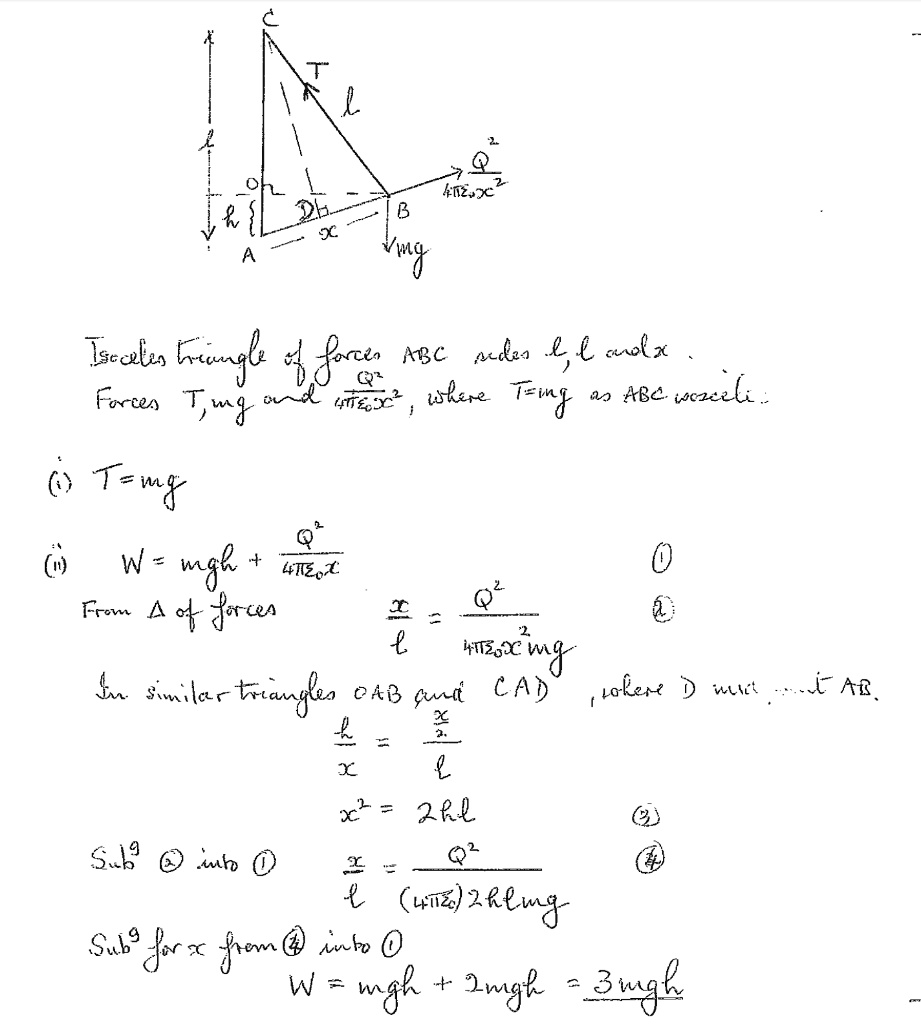 C
T
l
l
Q²
4πε₀x²
O
h {
D
B
x
A
mg
Isoceles triangle of forces ABC sides l, l and x.
Forces T, mg and Q²/4πε₀x², where T=mg as ABC
(i) T=mg
(ii) W = mgh + Q²/4πε₀x ①
From Δ of forces x/l = Q²/4πε₀x²mg ②
In similar triangles OAB and CAD, where D AB.
h/x = (x/2)/l
x² = 2hl ③
Subᵍ ② into ① x/l = Q²/(4πε₀)2hlmg ④
Subᵍ for x from ④ into ①
W = mgh + 2mgh = 3mgh